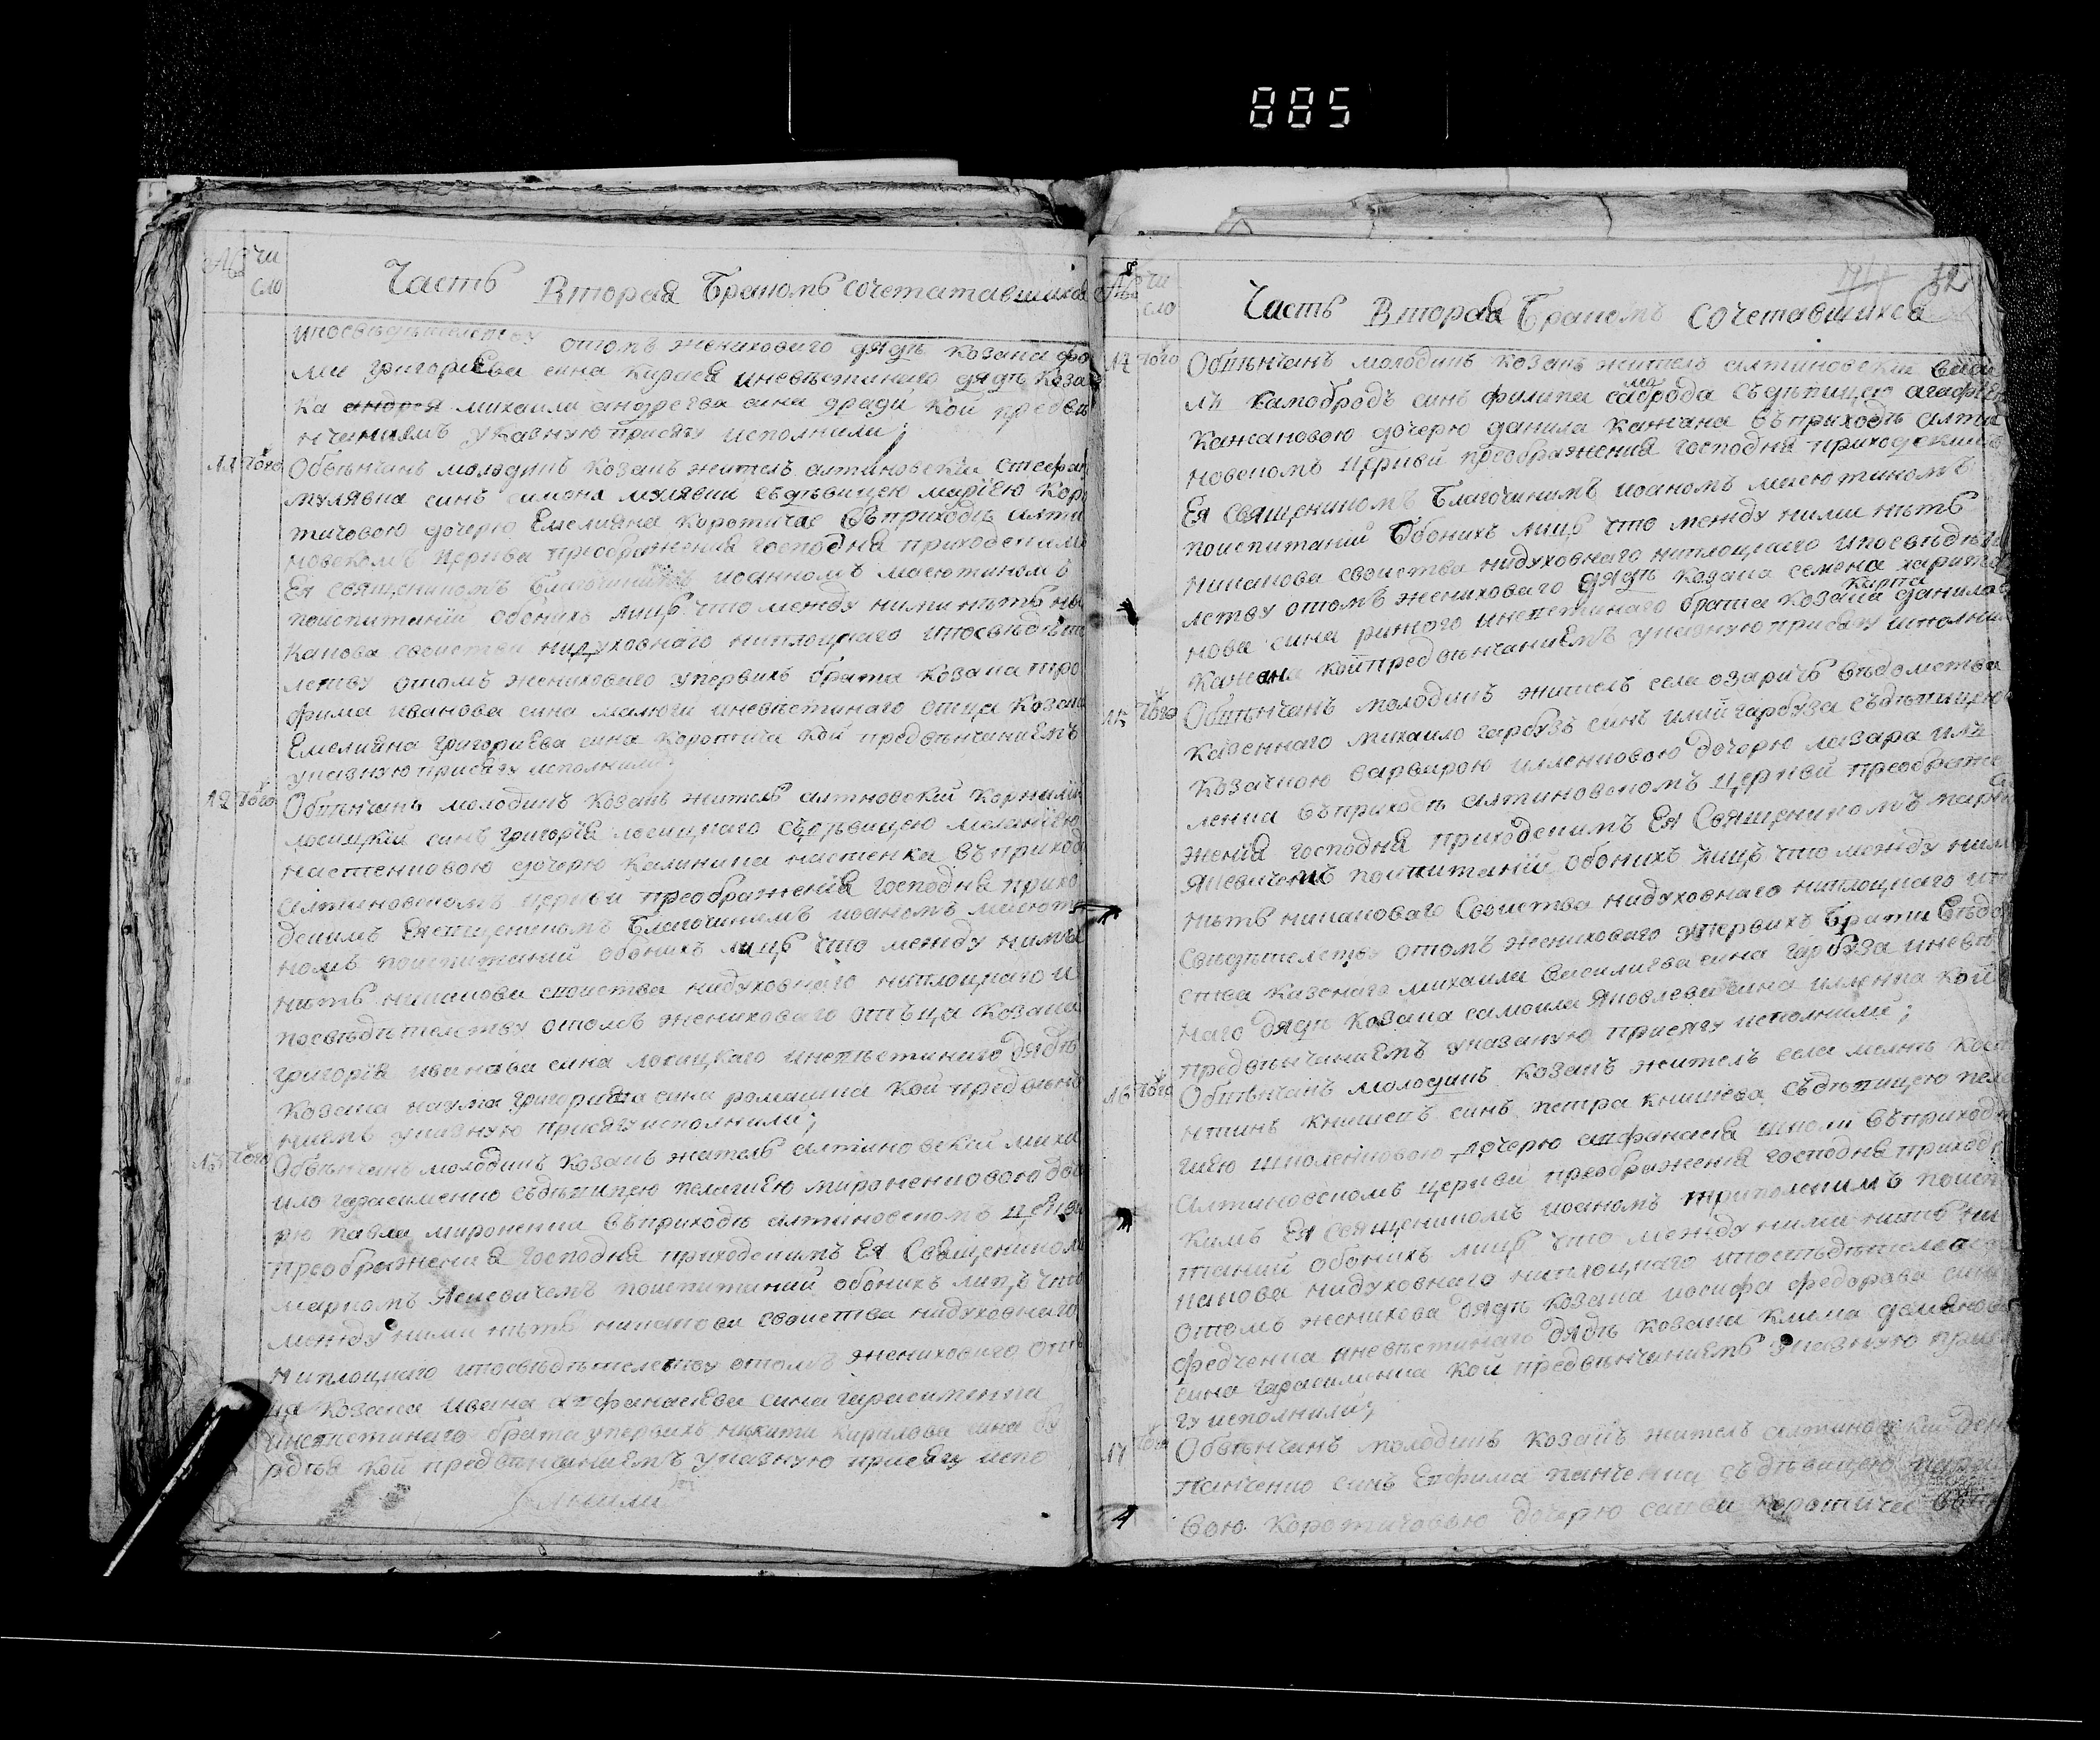 885
№ чи
сло
Часть Вторая Бракомъ сочетатавшихся
ипосвѣдѣтелству отомъ жениховаго дядѣ козака фо
ми григориева сина карася иневѣстинаго дядѣ коза
ка андрея михаили андреева сина кой предвѣ
нчаниемъ указную присягу исполнили;
11 того Обвѣнчанъ молодикъ козакъ жителъ алтиновскїи стефан
мулявка синъ симона мулявки съдѣвицею марїею коро
тичовою дочерю Емелияна коротичае въприходѣ алти
новскомъ церкви преображения господня приходскимъ
Ея священикомъ Благочинимъ иоанномъ масютиномъ
поиспитанїи обоихъ лицъ что между ними нѣтъ ни
какова свойства нидуховнаго ниплоцкаго ипосвѣдѣте
лству отомъ жениховаго упервихъ брата козака тро
фима иванова сина малюги иневѣстинаго отца козака
Емелияна григориева сина коротича кой предвѣнчаниемъ
указную присягу исполнили;
12 того Обвѣнчанъ молодикъ козакъ жителъ алтновскїй корнилїи
лосицкїй синъ григорїя лосицкаго съдѣвицею меланїею
настенковою дочерю калиника настенка въприходѣ
алтиновскомъ церкви преображенїя господня прихо
дскимъ Ея священикомъ Благочинимъ иоаномъ масюти
номъ поиспитанїй обоихъ лицъ что между ними
нѣтъ никакова споиства нидуховнаго ниплоцкаго и
посвѣдѣтелству отомъ жениховаго отѣца козака
григорїя иванава сина лосицкаго иневѣстинаго дядѣ
козака наума григориева сина ромашка кой предвѣнча
ниемъ указную присягу исполнили;
13 того Обвѣнчанъ молодикъ козакъ жителъ алтиновскїй миха
ило гарасименко съдѣвицею пелагиею мироненковою доче
рю павла мироненка въприходѣ алтиновскомъ церкви
преображения господня приходскимъ Ея Священикомъ
маркомъ Ясневичемъ поиспитанїй обоихъ лицъ что
между ними нѣтъ никакова своиства нидуховнаго
ниплоцкаго ипосвѣдѣтелству отомъ жениховаго отѣ
ца козака ивана атфанасиева сина гарасименка
иневѣстинаго брата упервихъ никити кирилова сина
кой предвѣнчаниемъ указную присягу испо
лнили
№ чи
сло
52
Часть Вторая Бракомъ сочетавшихся
14 того Обвѣнчанъ молодикъ козакъ жителъ алтиновскїи васи
лъ самобродъ синъ филипа самброда съдѣвицею агафїею
кажановою дочерю данила кажана въприходѣ алти
новскомъ церквѣй преображения господня приходскимъ
Ея священикомъ Благочинимъ иоаномъ масютиномъ
поиспитанїй Обоихъ лицъ что между ними нѣтъ
никакова своиства нидуховнаго ниплоцкаго ипосвѣдѣте
лству отомъ жениховаго дядѣ козака семена харито
нова сина иневѣстинаго брата козака карпа данилова
кажана кой предвѣнчаниемъ указную присягу исполнили
15 того Обвѣнчанъ молодикъ жителъ села озаричъ вѣдомства
казеннаго михаило гарбузъ синъ илїи гарбуза съдѣвицею
козачкою варварою илленковою дочерю лазара илъ
ленка въприходѣ алтиновскомъ церквѣй преображе
женїя господня приходскимъ Ея Священикомъ марко
Ясневичемъ поиспитанїй обоихъ лицъ что между ними
нѣтъ никаковаго Своиства нидуховнаго ниплоцкаго ипо
свидѣтелству отомъ жениховаго упервихъ Брати вѣдом
ства казенаго михаила василиева сина гарбуза иневѣсти
наго дядѣ козака самоила Яковлева сина илленка кой
предвѣнчаниемъ указаную присягу исполнили;
16 того Обвѣнчанъ молодикъ козакъ жителъ села
книшевъ синъ петра книшева съдѣвицею пела
гиею шполенковою дочерю атфанасїя шполи въприходѣ
алтиновскомъ церкви преображения господня приходс
кимъ Ея священикомъ иоаномъ триполскимъ поиспи
танїй обоихъ лицъ что между ними нѣтъ ни
какова нидуховнаго ниплоцкаго ипосвѣдѣтелству
отомъ женихова дядѣ козака иосифа федорова сина
федченка иневѣстинаго дядѣ козака клима демянова
сина гарасименка кой предвѣнчаниемъ указную прися
гу исполнили;
17 того Обвѣнчанъ молодикъ козакъ жителъ алтиновскїй
панченко синъ Евфима панченка съдѣвицею
вою коротичовою дочерю савви коротича